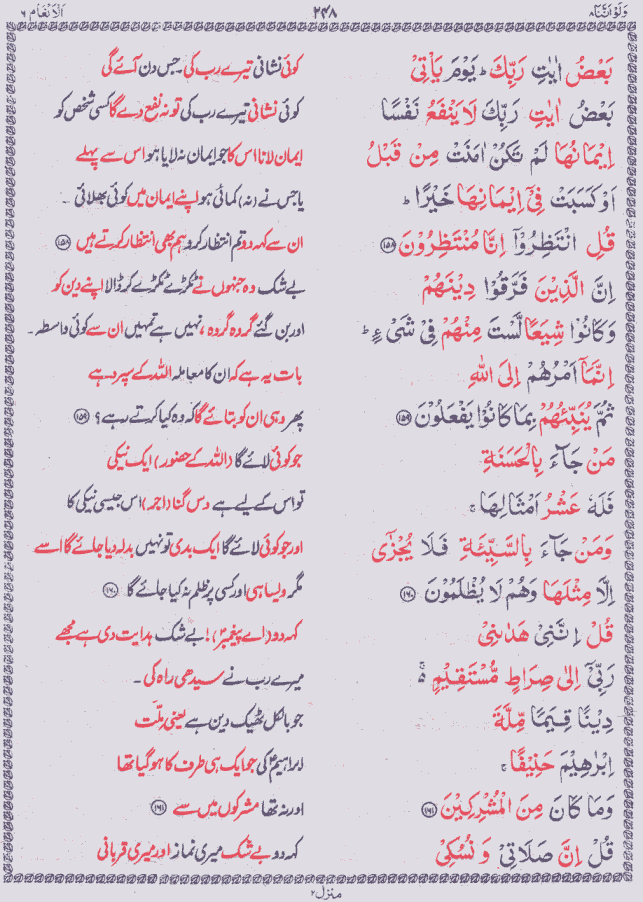 وَلَوْ اَنَّنَا ٨
٢٤٨
اَلْاَنْعَام ٦
بَعْضُ اٰيٰتِ رَبِّكَ ؕ يَوْمَ يَاْتِيْ
کوئی نشانی تیرے رب کی۔ جس دن آئے گی
بَعْضُ اٰيٰتِ رَبِّكَ لَا يَنْفَعُ نَفْسًا
کوئی نشانی تیرے رب کی تو نہ نفع دے گا کسی شخص کو
اِيْمَانُهَا لَمْ تَكُنْ اٰمَنَتْ مِنْ قَبْلُ
ایمان لانا اس کا جو ایمان نہ لایا ہو اس سے پہلے
اَوْ كَسَبَتْ فِيْٓ اِيْمَانِهَا خَيْرًا ؕ
یا جس نے (نہ) کمائی ہو اپنے ایمان میں کوئی بھلائی ۔
قُلِ انْتَظِرُوْٓا اِنَّا مُنْتَظِرُوْنَ ﴿١٥٨﴾
ان سے کہہ دو تم انتظار کرو ہم بھی انتظار کرتے ہیں ﴿١٥٨﴾
اِنَّ الَّذِيْنَ فَرَّقُوْا دِيْنَهُمْ
بے شک وہ جنہوں نے ٹکڑے ٹکڑے کر ڈالا اپنے دین کو
وَكَانُوْا شِيَعًا لَّسْتَ مِنْهُمْ فِيْ شَيْءٍ ؕ
اور بن گئے گروہ گروہ، نہیں ہے تمہیں ان سے کوئی واسطہ۔
اِنَّمَآ اَمْرُهُمْ اِلَى اللّٰهِ
بات یہ ہے کہ ان کا معاملہ اللہ کے سپرد ہے
ثُمَّ يُنَبِّئُهُمْ بِمَا كَانُوْا يَفْعَلُوْنَ ﴿١٥٩﴾
پھر وہی ان کو بتائے گا کہ وہ کیا کرتے رہے؟ ﴿١٥٩﴾
مَنْ جَآءَ بِالْحَسَنَةِ
جو کوئی لائے گا (اللہ کے حضور) ایک نیکی
فَلَهٗ عَشْرُ اَمْثَالِهَا ۚ
تو اس کے لیے ہے دس گنا (اجر) اس جیسی نیکی کا
وَمَنْ جَآءَ بِالسَّيِّئَةِ فَلَا يُجْزٰٓى
اور جو کوئی لائے گا ایک بدی تو نہیں بدلہ دیا جائے گا اسے
اِلَّا مِثْلَهَا وَهُمْ لَا يُظْلَمُوْنَ ﴿١٦٠﴾
مگر ویسا ہی اور کسی پر ظلم نہ کیا جائے گا ﴿١٦٠﴾
قُلْ اِنَّنِيْ هَدٰىنِيْ
کہہ دو (اے پیغمبر)! بے شک ہدایت دی ہے مجھے
رَبِّيْٓ اِلٰى صِرَاطٍ مُّسْتَقِيْمٍ ۬ۚ
میرے رب نے سیدھی راہ کی ۔
دِيْنًا قِيَمًا مِّلَّةَ
جو بالکل ٹھیک دین ہے یعنی ملّت
اِبْرٰهِيْمَ حَنِيْفًا ۚ
ابراہیمؑ کی جو ایک ہی طرف کا ہو گیا تھا
وَمَا كَانَ مِنَ الْمُشْرِكِيْنَ ﴿١٦١﴾
اور نہ تھا مشرکوں میں سے ﴿١٦١﴾
قُلْ اِنَّ صَلَاتِيْ وَنُسُكِيْ
کہہ دو بے شک میری نماز اور میری قربانی
منزل ٢